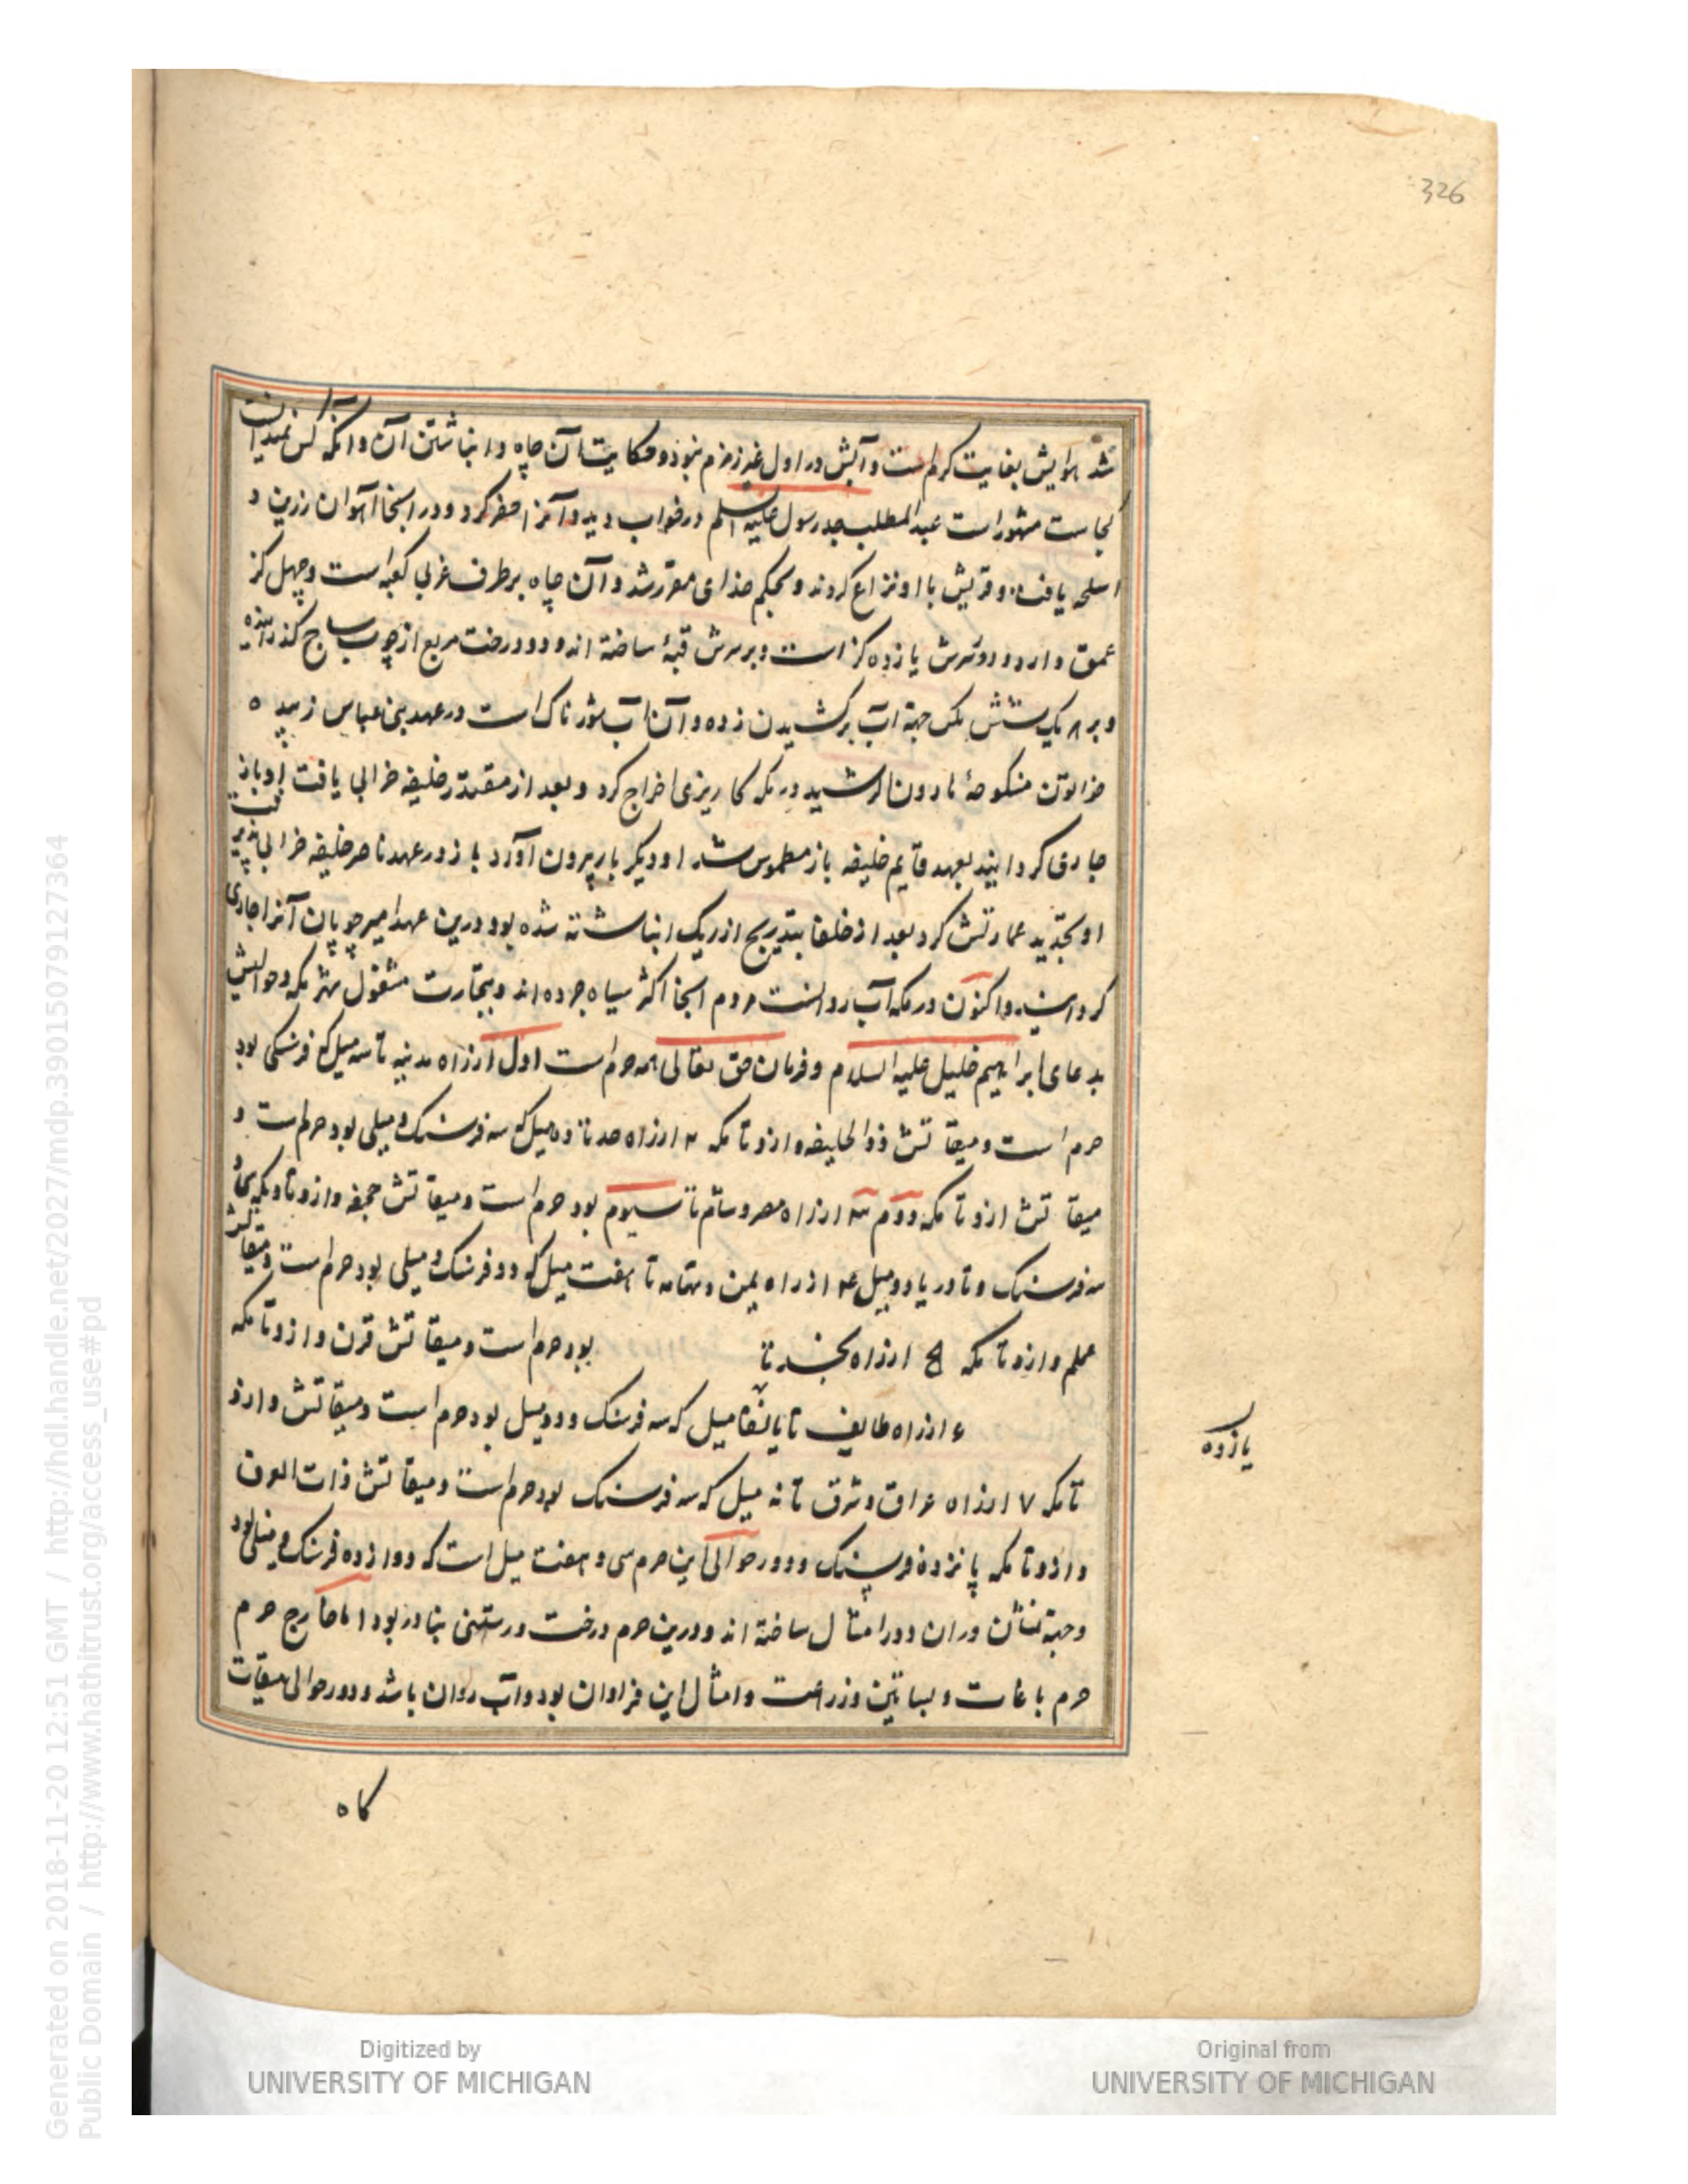 326
شد هوایش بغایت کرم است و آبش در اول غیر زمزم نبوذ و حکایت آن چاه و انباشتن آن و آنکه کس نمیدانست
کجاست مشهور است عبدالمطلب جد رسول علیه السلم در خواب دید و آنرا حفر کرد و در انجا آهوان زرین و
اسلحه یافت و قریش با او نزاع کردند و بحکم خدای مقرر شد و آن چاه بر طرف غربی کعبه است و چهل کز
عمق دارد و دورش یازده کز است و بر سرش قبهٔ ساخته اند و دو درخت مربع از چوب ساج کذرانیده
و بر ۸ یک شش بکره جهة آب برکشیدن زده و آن آب شورناک است در عهد بنی عباس زبیده
خواتون منکوحهٔ هارون الرشید در مکه کاریزی اخراج کرد و بعد از مقتدر خلیفه خرابی یافت او باز
جاری کردانید بعهد قایم خلیفه باز مطموس شد او دیکر بار بیرون آورد باز در عهد ناصر خلیفه خرابی پذیرفت
او بتجدید عمارتش کرد بعد از خلفا بتدریج از ریک انباشته شده بود درین عهد امیر چوپان آنرا جاری
کردانید و اکنون در مکه آب روانست مردم انجا اکثر سیاه چرده اند و بتجارت مشغول شهر مکه و حوالیش
بدعای ابراهیم خلیل علیه السلام و فرمان حق تعالی همه حرم است اول از راه مدینه تا سه میل که فرسنکی بود
حرم است و میقاتش ذو الحلیفه و ازو تا مکه ۲ از راه جده تا ده میل که سه فرسنک و میلی بود حرم است و
میقاتش ازو تا مکه دوم ۳ از راه مصر و شام تا سیوم بود حرم است و میقاتش جحفه و ازو تا مکه سی و
سه فرسنک و تا دریا دو میل ۴ از راه یمن و تهامه تا هفت میل که دو فرسنک و میلی بود حرم است و میقاتش
یلملم و ازو تا مکه ۵ از راه نجد تا بود حرم است و میقاتش قرن و ازو تا مکه
۶ از راه طایف تا میل که سه فرسنک و دو میل بود حرم است و میقاتش و ازو
یازده
تا مکه ۷ از راه عراق و شرق تا نه میل که سه فرسنک بود حرم است و میقاتش ذات العرق
و ازو تا مکه پانزده فرسنک و دور حوالی این حرم سی و هفت میل است که دوازده فرسنک و میلی بود
و جهة نشان بران دور امثال ساخته اند و درین حرم درخت و رستنی بنادر بود اما خارج حرم
حرم باغات و بساتین و زراعت و امثال این فراوان بود و آب روان باشد و دور حوالی میقات
کاه
Generated on 2018-11-20 12:51 GMT / http://hdl.handle.net/2027/mdp.39015079127364
Public Domain / http://www.hathitrust.org/access_use#pd
Digitized by
UNIVERSITY OF MICHIGAN
Original from
UNIVERSITY OF MICHIGAN